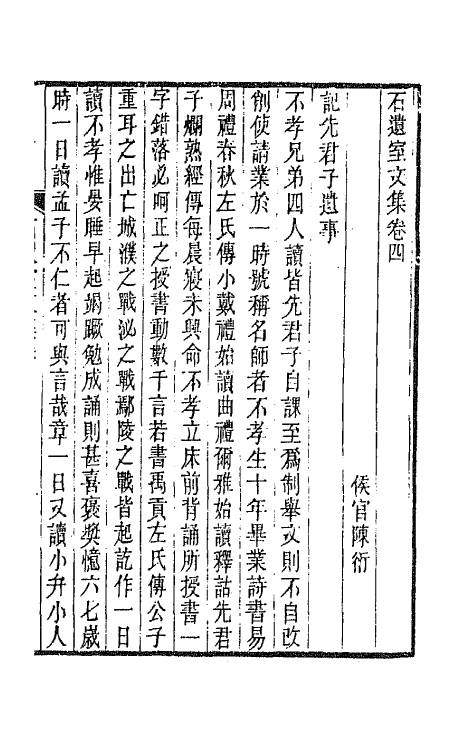 石遺室文集卷四
侯官陳衍
記先君子遺事
不孝兄弟四人讀皆先君子自課至爲制舉文則不自改
削使請業於一時號稱名師者不孝生十年畢業詩書易
周禮春秋左氏傳小戴禮始讀曲禮爾雅始讀釋詁先君
子爛熟經傳每晨寢未興命不孝立床前背誦所授書一
字錯落必呵正之授書動數千言若書禹貢左氏傳公子
重耳之出亡城濮之戰泌之戰鄢陵之戰皆起訖作一日
讀不孝惟晏睡早起竭蹶勉成誦則甚喜褒奬憶六七歲
時一日讀孟子不仁者可與言哉章一日又讀小弁小人